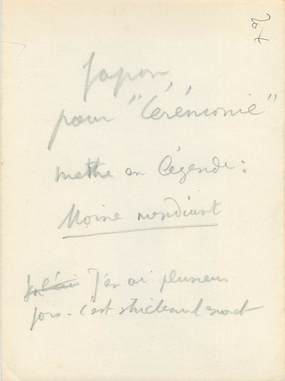 Japon,
pour "Cérémonie"
mettre en Légende:
Moine mendiant
J'en ai plusieurs
fois - c'est strictement exact